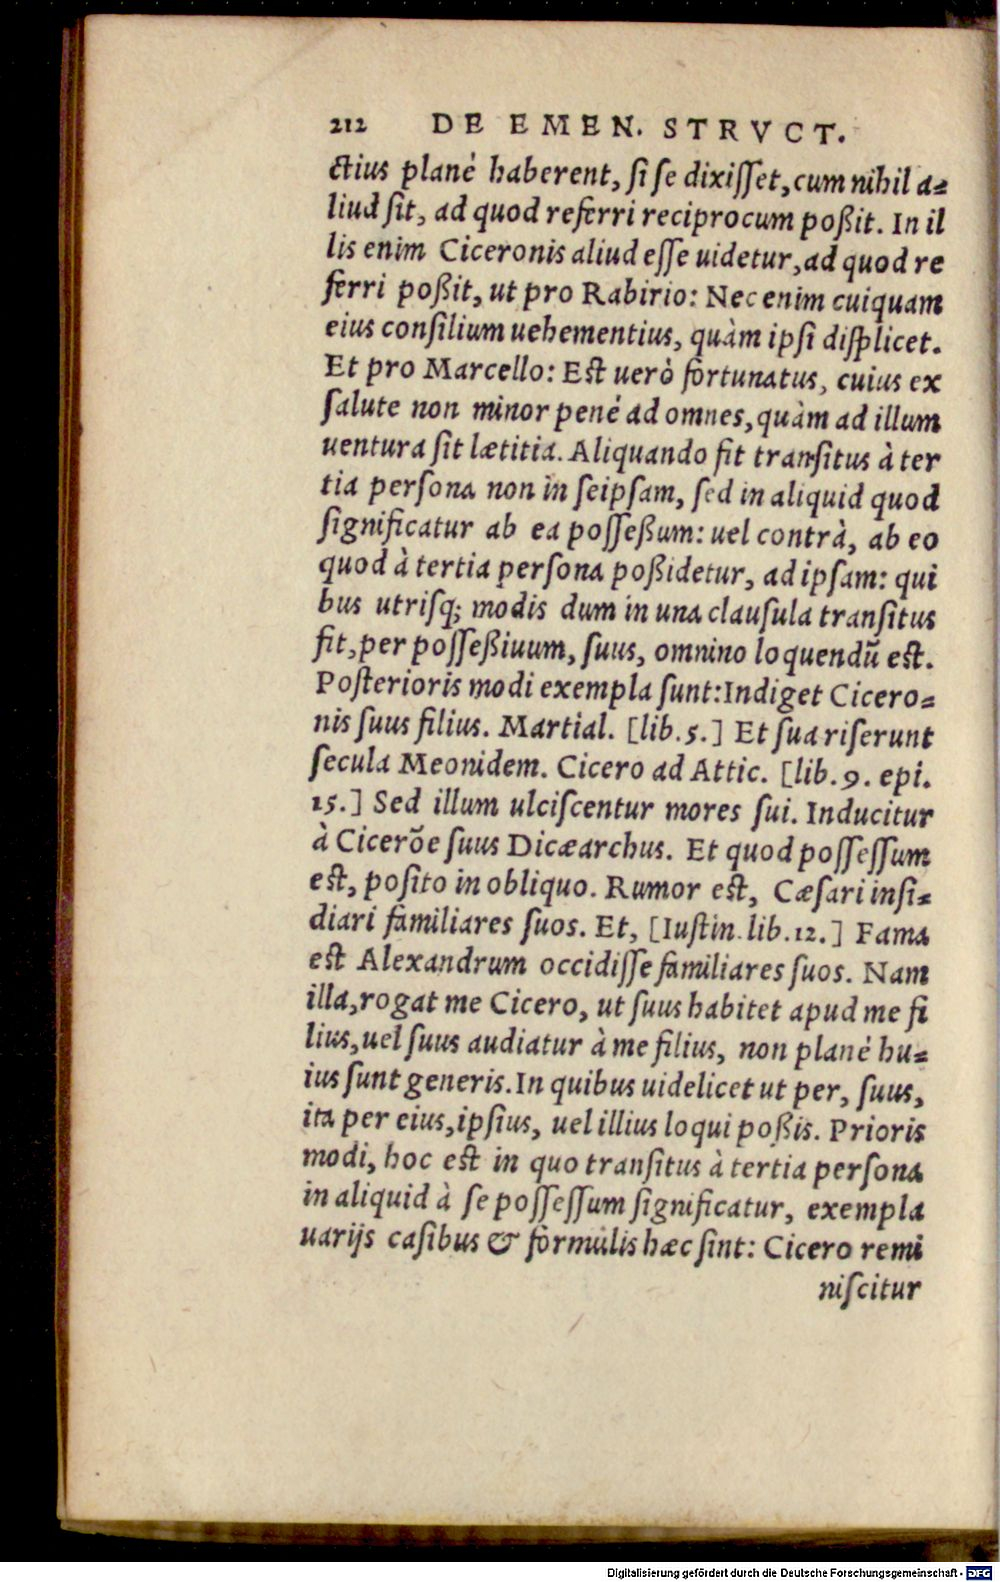 212 DE EMEN. STRVCT.
ctius planè haberent, si se dixisset, cum nihil a=
liud sit, ad quod referri reciprocum poßit. In il
lis enim Ciceronis aliud esse uidetur, ad quod re
ferri poßit, ut pro Rabirio: Nec enim cuiquam
eius consilium uehementius, quàm ipsi displicet.
Et pro Marcello: Est uerò fortunatus, cuius ex
salute non minor penè ad omnes, quàm ad illum
uentura sit lætitia. Aliquando fit transitus à ter
tia persona non in seipsam, sed in aliquid quod
significatur ab ea posseßum: uel contrà, ab eo
quod à tertia persona poßidetur, ad ipsam: qui
bus utrisq; modis dum in una clausula transitus
fit, per posseßiuum, suus, omnino loquendũ est.
Posterioris modi exempla sunt: Indiget Cicero=
nis suus filius. Martial. [lib.5.] Et sua riserunt
secula Meonidem. Cicero ad Attic. [lib.9. epi.
15.] Sed illum ulciscentur mores sui. Inducitur
à Cicerõe suus Dicæarchus. Et quod possessum
est, posito in obliquo. Rumor est, Cæsari insi=
diari familiares suos. Et, [Iustin. lib.12.] Fama
est Alexandrum occidisse familiares suos. Nam
illa, rogat me Cicero, ut suus habitet apud me fi
lius, uel suus audiatur à me filius, non planè hu=
ius sunt generis. In quibus uidelicet ut per, suus,
ita per eius, ipsius, uel illius loqui poßis. Prioris
modi, hoc est in quo transitus à tertia persona
in aliquid à se possessum significatur, exempla
uarijs casibus & formulis hæc sint: Cicero remi
niscitur
Digitalisierung gefördert durch die Deutsche Forschungsgemeinschaft - DFG